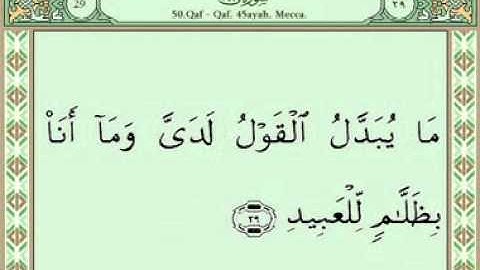 29
٢٩
50.Qaf - Qaf. 45ayah. Mecca.
مَا يُبَدَّلُ ٱلْقَوْلُ لَدَىَّ وَمَآ أَنَا۠
بِظَلَّـٰمٍ لِّلْعَبِيدِ ٢٩